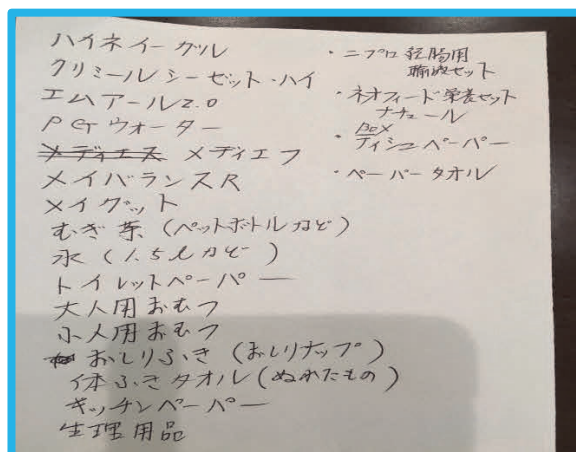 ハイネイーゲル
クリミール シーゼット・ハイ
エムアール2.0
PGウォーター
メディエス メディエフ
メイバランスR
メイグット
むぎ茶 (ペットボトルなど)
水 (1.5ℓなど)
トイレットペーパー
大人用おむつ
小人用おむつ
おしりふき (おしりナップ)
体ふきタオル (ぬれたもの)
キッチンペーパー
生理用品
・ニプロ 経腸用
輸液セット
・ネオフィード 栄養セット
ナチュール
・BOX
ティシュペーパー
・ペーパータオル